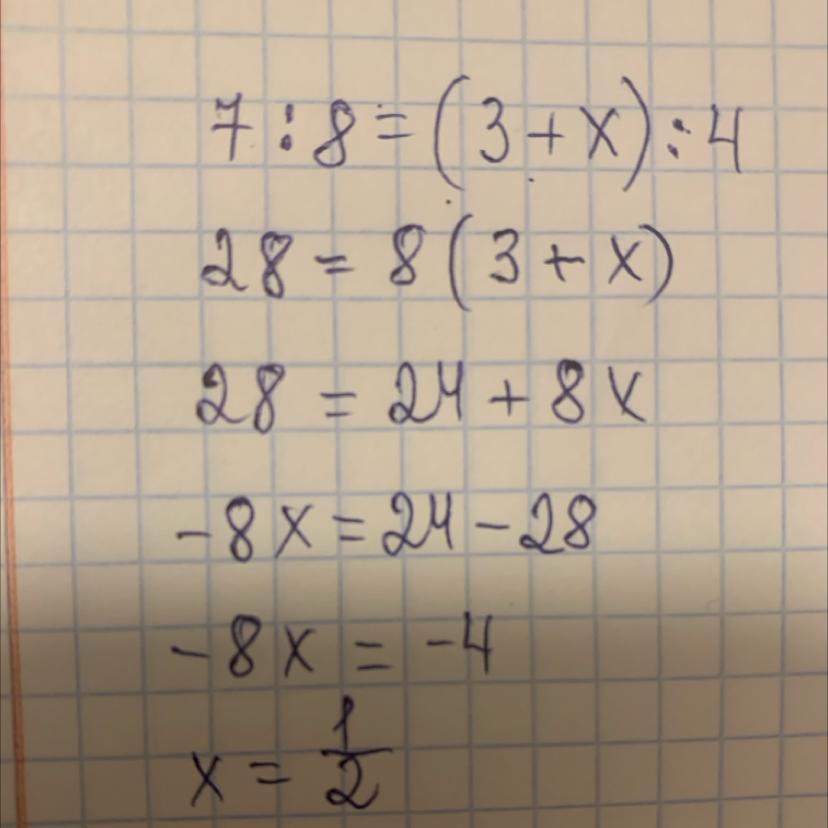 7 : 8 = (3 + x) : 4
28 = 8 (3 + x)
28 = 24 + 8x
-8x = 24 - 28
-8x = -4
x = 1/2